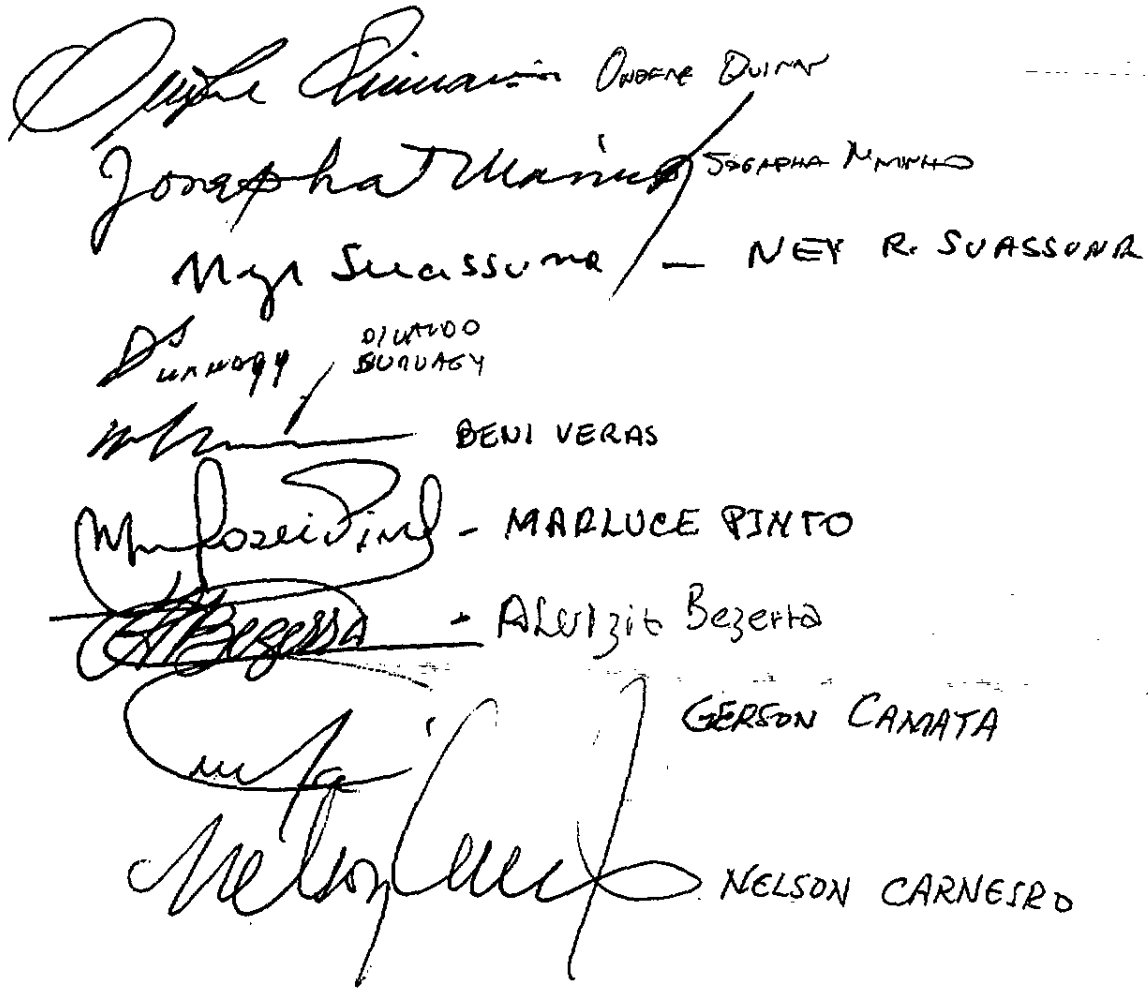 Onofre Quinan
Josapha Marinho Josapha Marinho
Ney Suassuna - NEY R. SUASSUNA
Suruagy DIVALDO
SURUAGY
BENI VERAS
- MARLUCE PINTO
Bezerra - Aluizio Bezerra
GERSON CAMATA
Nelson Carneiro NELSON CARNEIRO